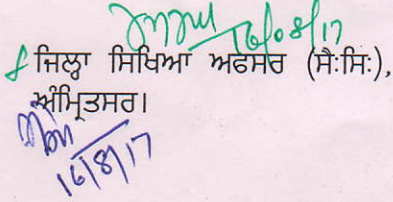 16/08/17
ਜਿਲ੍ਹਾ ਸਿਖਿਆ ਅਫਸਰ (ਸੈ:ਸਿ:),
ਅੰਮ੍ਰਿਤਸਰ।
16/8/17